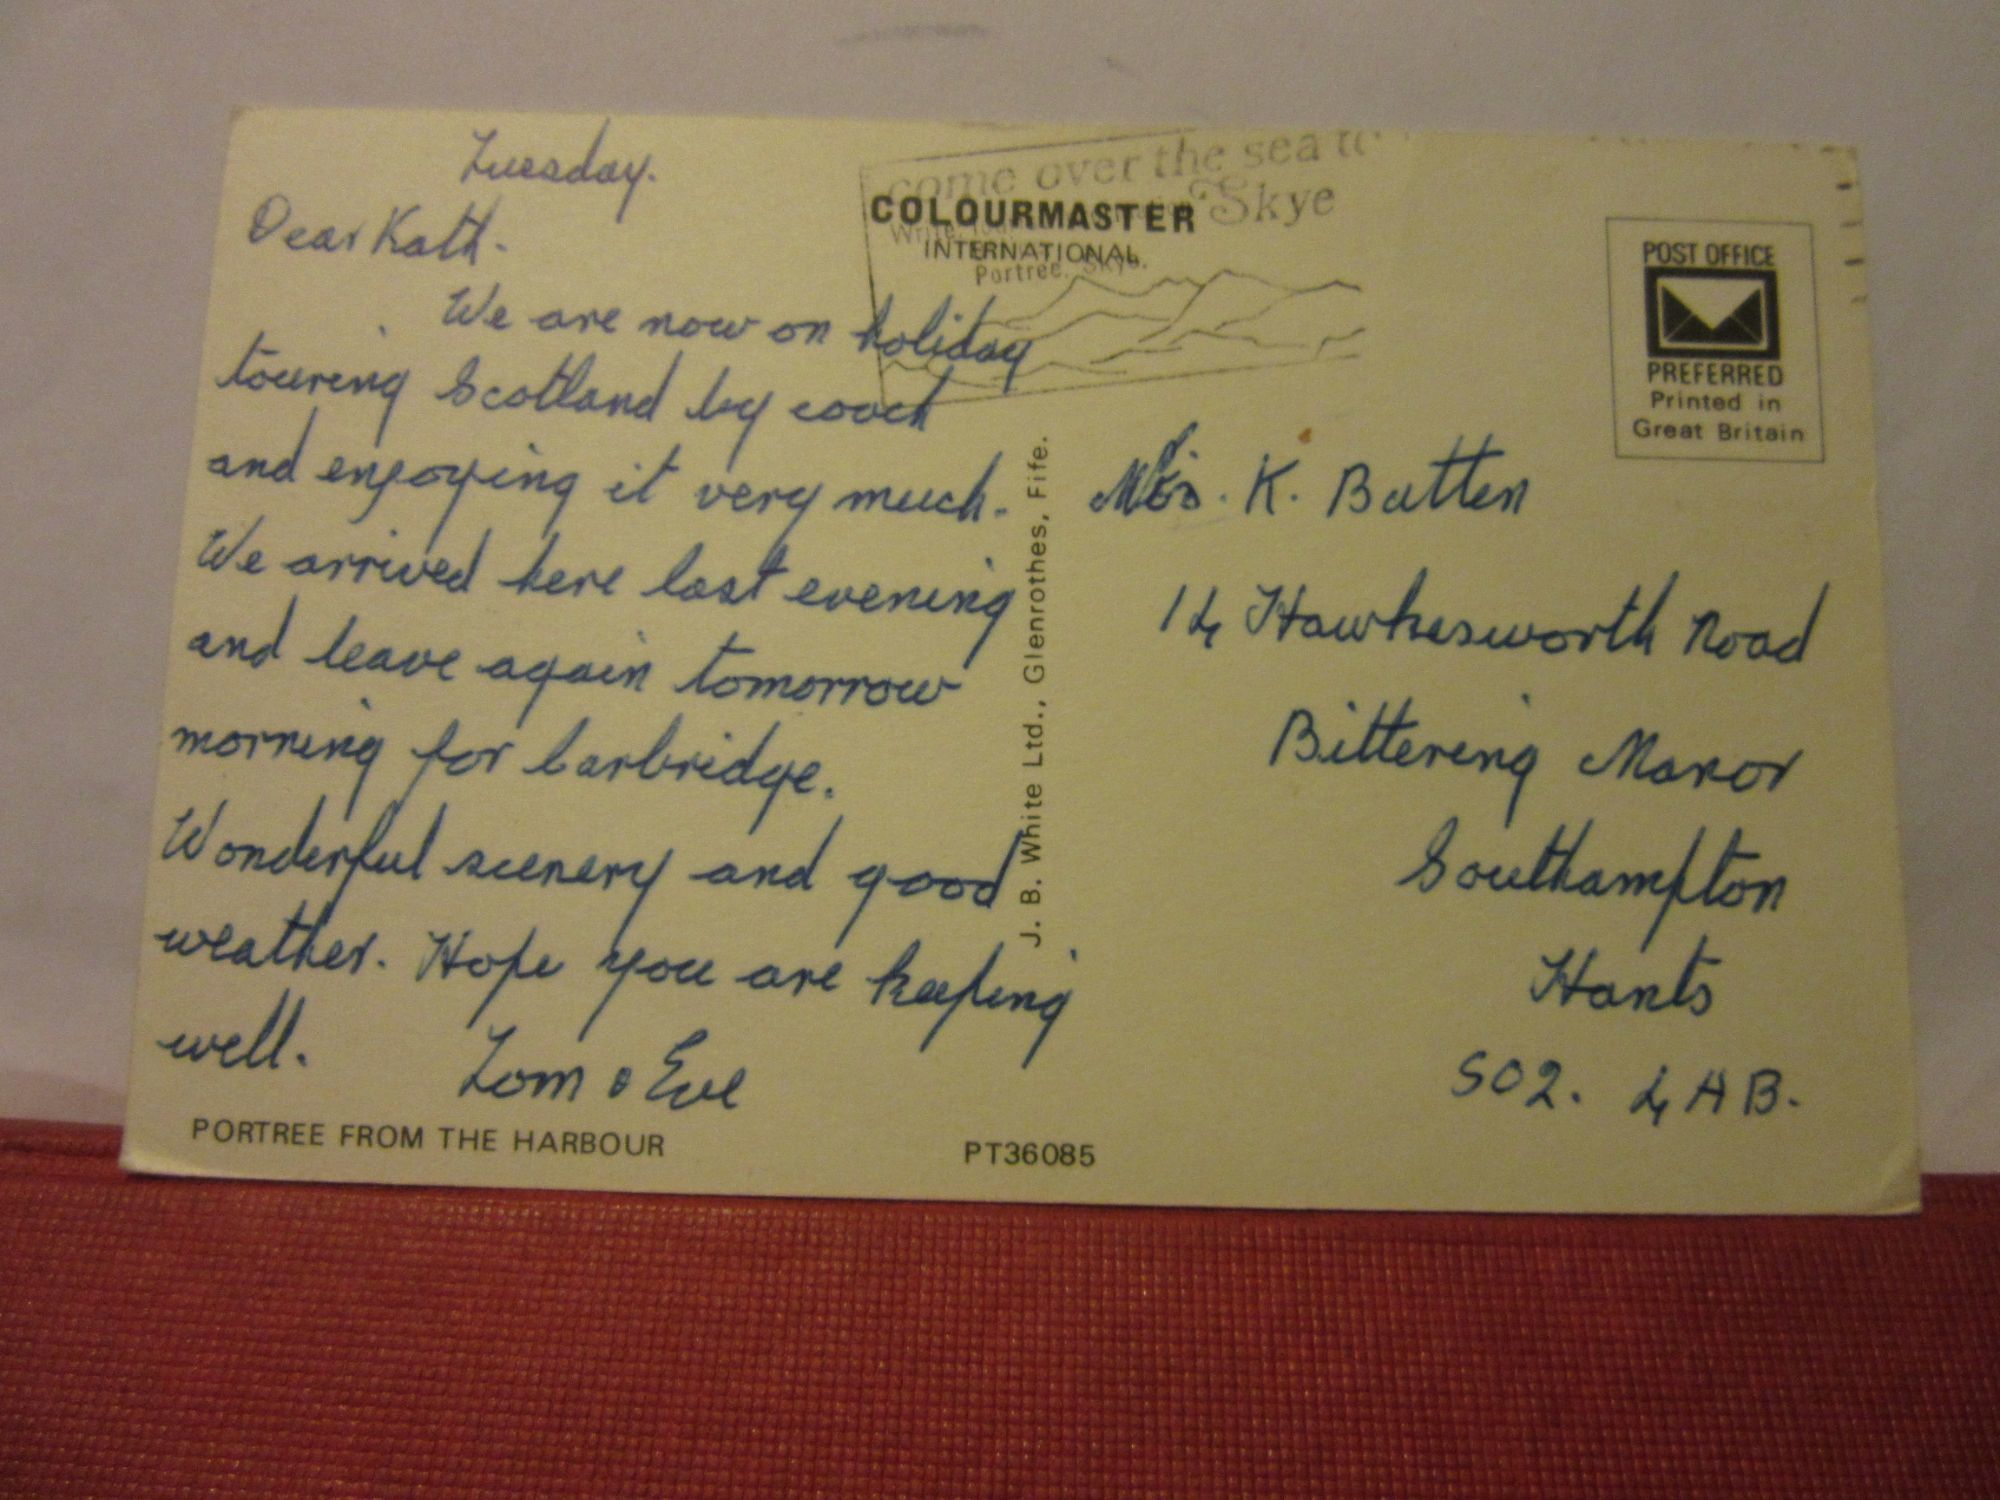 Tuesday.
Dear Kath.
We are now on holiday
touring Scotland by coach
and enjoying it very much.
We arrived here last evening
and leave again tomorrow
morning for Carbridge.
Wonderful scenery and good
weather. Hope you are keeping
well. Tom & Eve
PORTREE FROM THE HARBOUR
PT36085
come over the sea to
Skye
Portree, Skye.
COLOURMASTER
INTERNATIONAL
J. B. White Ltd., Glenrothes, Fife.
POST OFFICE
PREFERRED
Printed in
Great Britain
K. Batten
14 Hawkesworth Road
Bittering Manor
Southampton
Hants
SO2. 4HB.